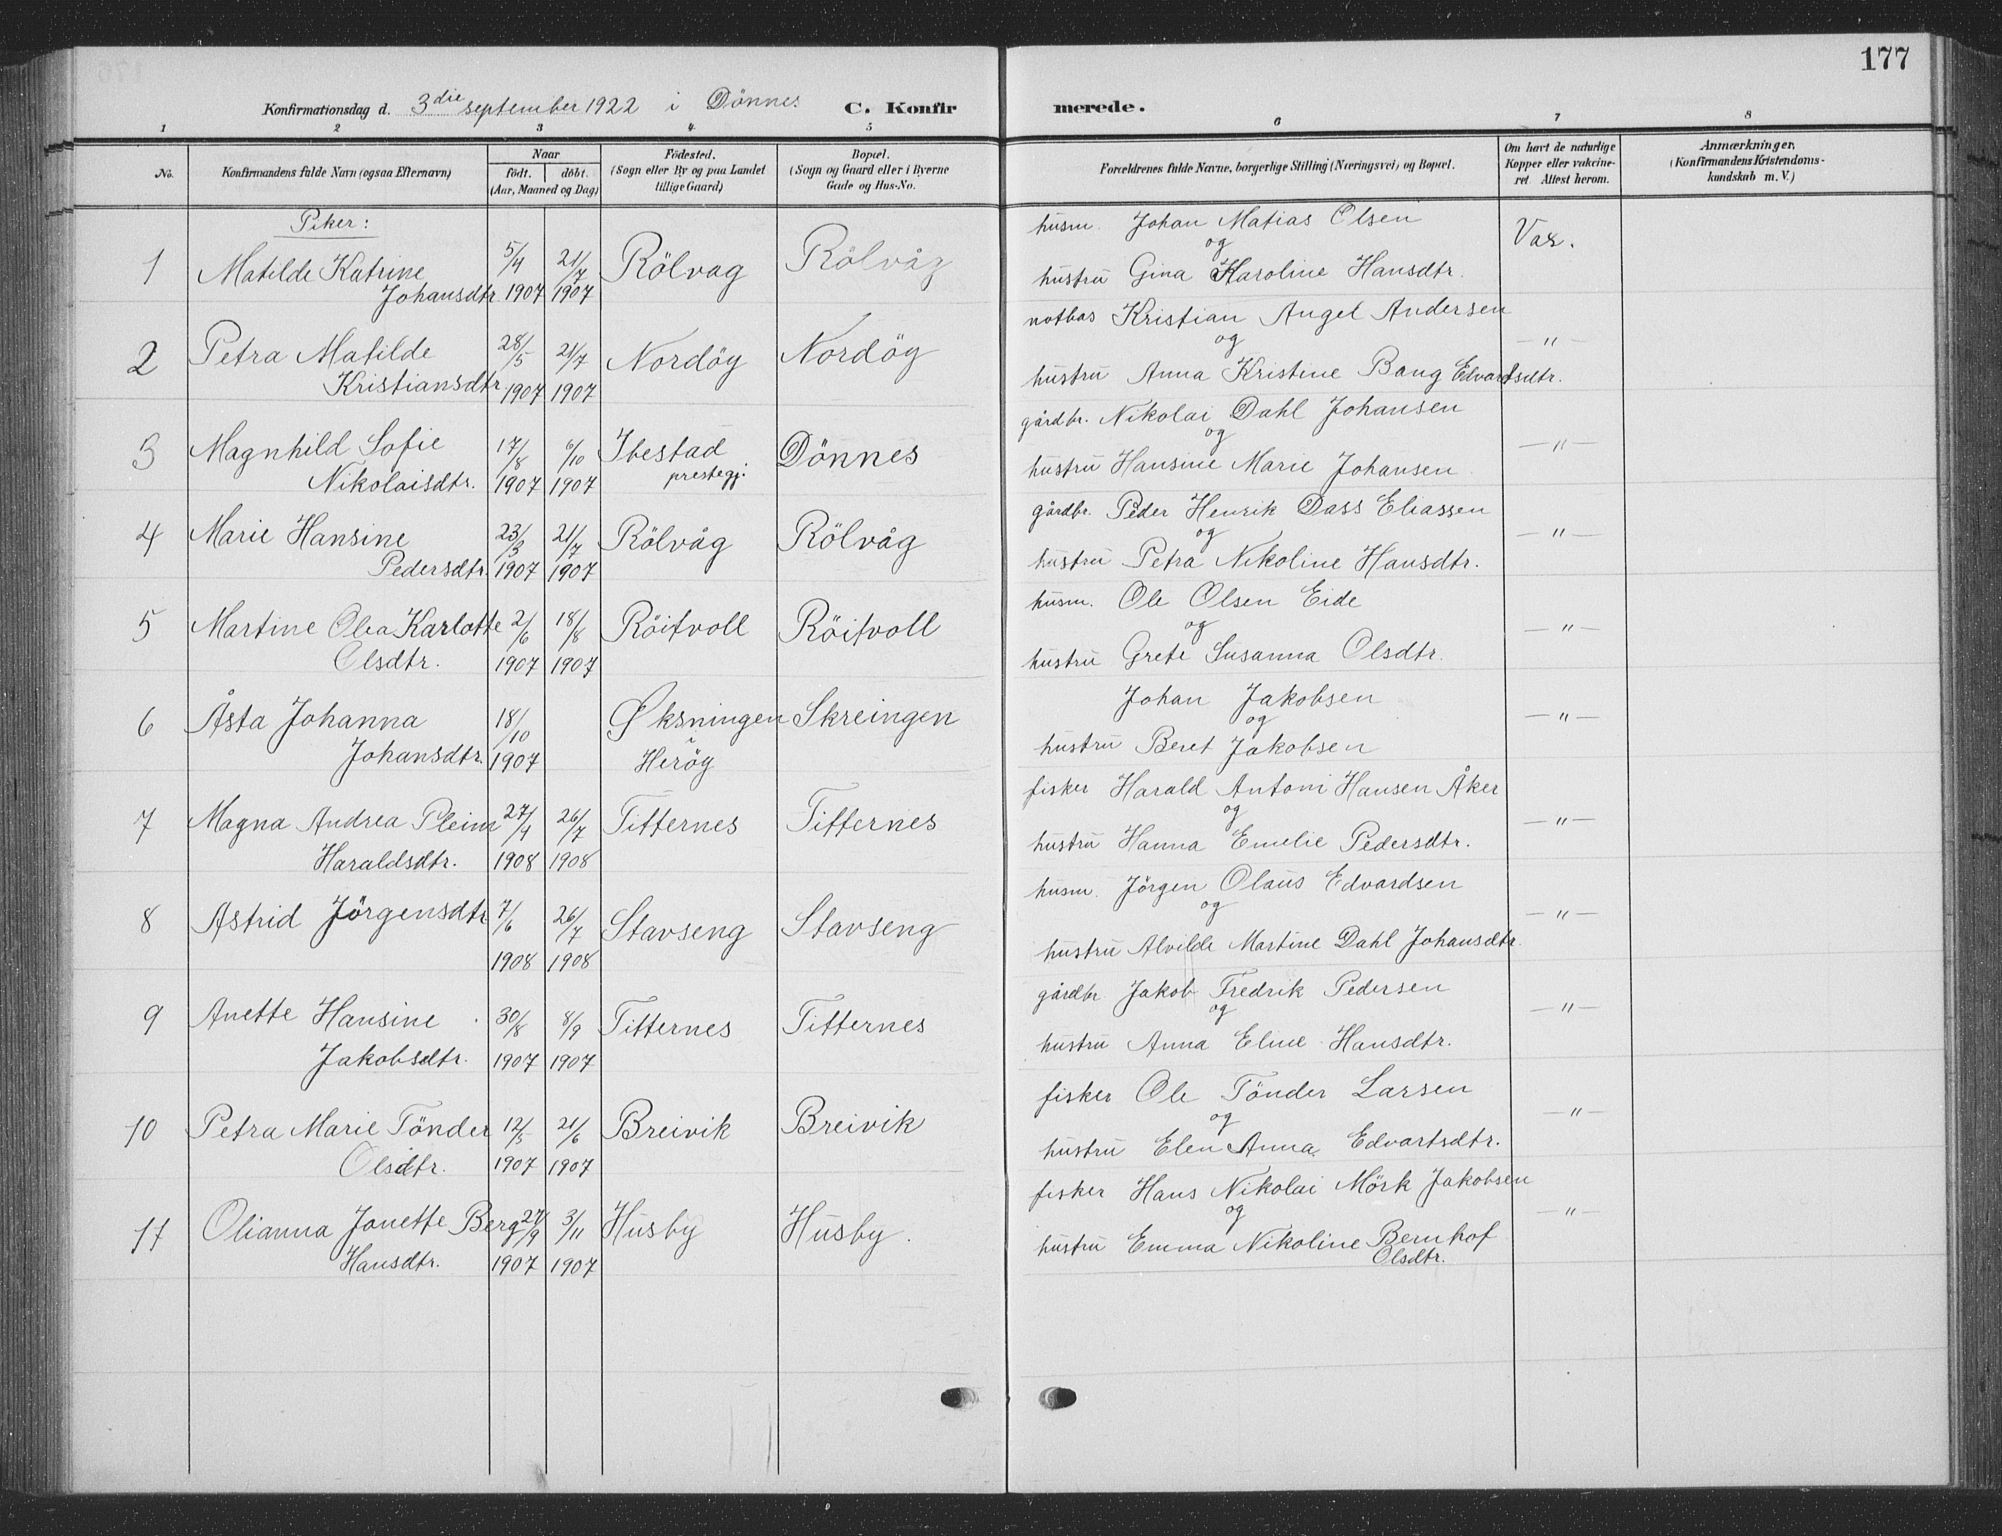 177
Konfirmationsdag d. 3die september 1922 i Dönnes C. Konfirmerede.
1 2 3 4 5 6 7 8
No.
Konfirmandens fulde Navn (ogsaa Efternavn)
Naar
født. døbt.
(Aar, Maaned og Dag)
Fødested.
(Sogn eller By og paa Landet
tillige Gaard)
Bopæl.
(Sogn og Gaard eller i Byerne
Gade og Hus-No.
Forældrenes fulde Navne, borgerlige Stilling (Næringsvei) og Bopæl.
Om havt de naturlige
Kopper eller vakcine-
ret Attest herom.
Anmærkninger.
(Konfirmandens Kristendoms-
kundskab m. V.)
Piker:
1 Matilde Katrine 5/4 21/7 Rölvag Rölvåg husm. Johan Matias Olsen Vax.
og
Johansdtr. 1907 1907 hustru Gina Karoline Hansdtr.
2 Petra Matilde 28/5 21/7 Nordöy Nordöy notbas Kristian Angel Andersen — " —
og
Kristiansdtr. 1907 1907 hustru Anna Kristine Bang Edvardsdtr.
3 Magnhild Sofie 17/8 6/10 Ibestad Dönnes gårdbr. Nikolai Dahl Johansen — " —
og
Nikolaisdtr. 1907 1907 prestegj. hustru Hansine Marie Johansen
4 Marie Hansine 23/3 21/7 Rölvåg Rölvåg gårdbr. Peder Henrik Dass Eliassen — " —
og
Pedersdtr. 1907 1907 hustru Petra Nikoline Hansdtr.
5 Martine Olea Karlotte 2/6 18/8 Röitvoll Röitvoll husm. Ole Olsen Eide — " —
og
Olsdtr. 1907 1907 hustru Grete Susanna Olsdtr.
6 Åsta Johanna 18/10 Øksningen Skreingen Johan Jakobsen — " —
i og
Johansdtr. 1907 Heröy hustru Beret Jakobsen
7 Magna Andrea 27/4 26/7 Titternes Titternes fisker Harald Antoni Hansen Åker — " —
og
Haraldsdtr. 1908 1908 hustru Hanna Emelie Pedersdtr.
8 Astrid Jörgensdtr 7/6 26/7 Stavseng Stavseng husm. Jörgen Olaus Edvardsen — " —
og
1908 1908 hustru Alvilde Martine Dahl Johansdtr.
9 Anette Hansine 30/8 8/9 Titternes Titternes gårdbr Jakob Fredrik Pedersen — " —
og
Jakobsdtr. 1907 1907 hustru Anna Eline Hansdtr.
10 Petra Marie Tönder 12/5 21/6 Breivik Breivik fisker Ole Tönder Larsen — " —
og
Olsdtr. 1907 1907 hustru Elen Anna Edvartsdtr.
11 Olianna Jonette Berg 27/9 3/11 Husby Husby. fisker Hans Nikolai Mörk Jakobsen — " —
og
Hansdtr. 1907 1907 hustru Emma Nikoline Bernhof
Olsdtr.